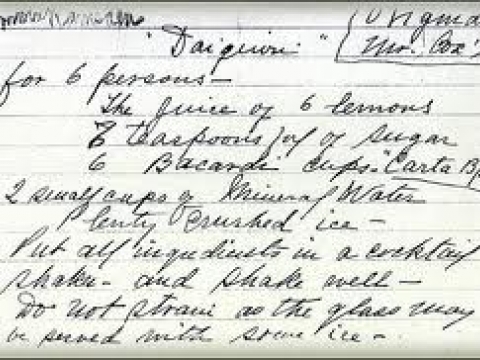 "Daiquiri"
Mr. Cox's
for 6 persons—
The juice of 6 lemons
6 teaspoons full of sugar
6 Bacardi cups "Carta B
2 small cups of Mineral Water
Plenty crushed ice—
Put all ingredients in a cocktail
shaker— and shake well—
Do not strain as the glass may
be served with some ice—